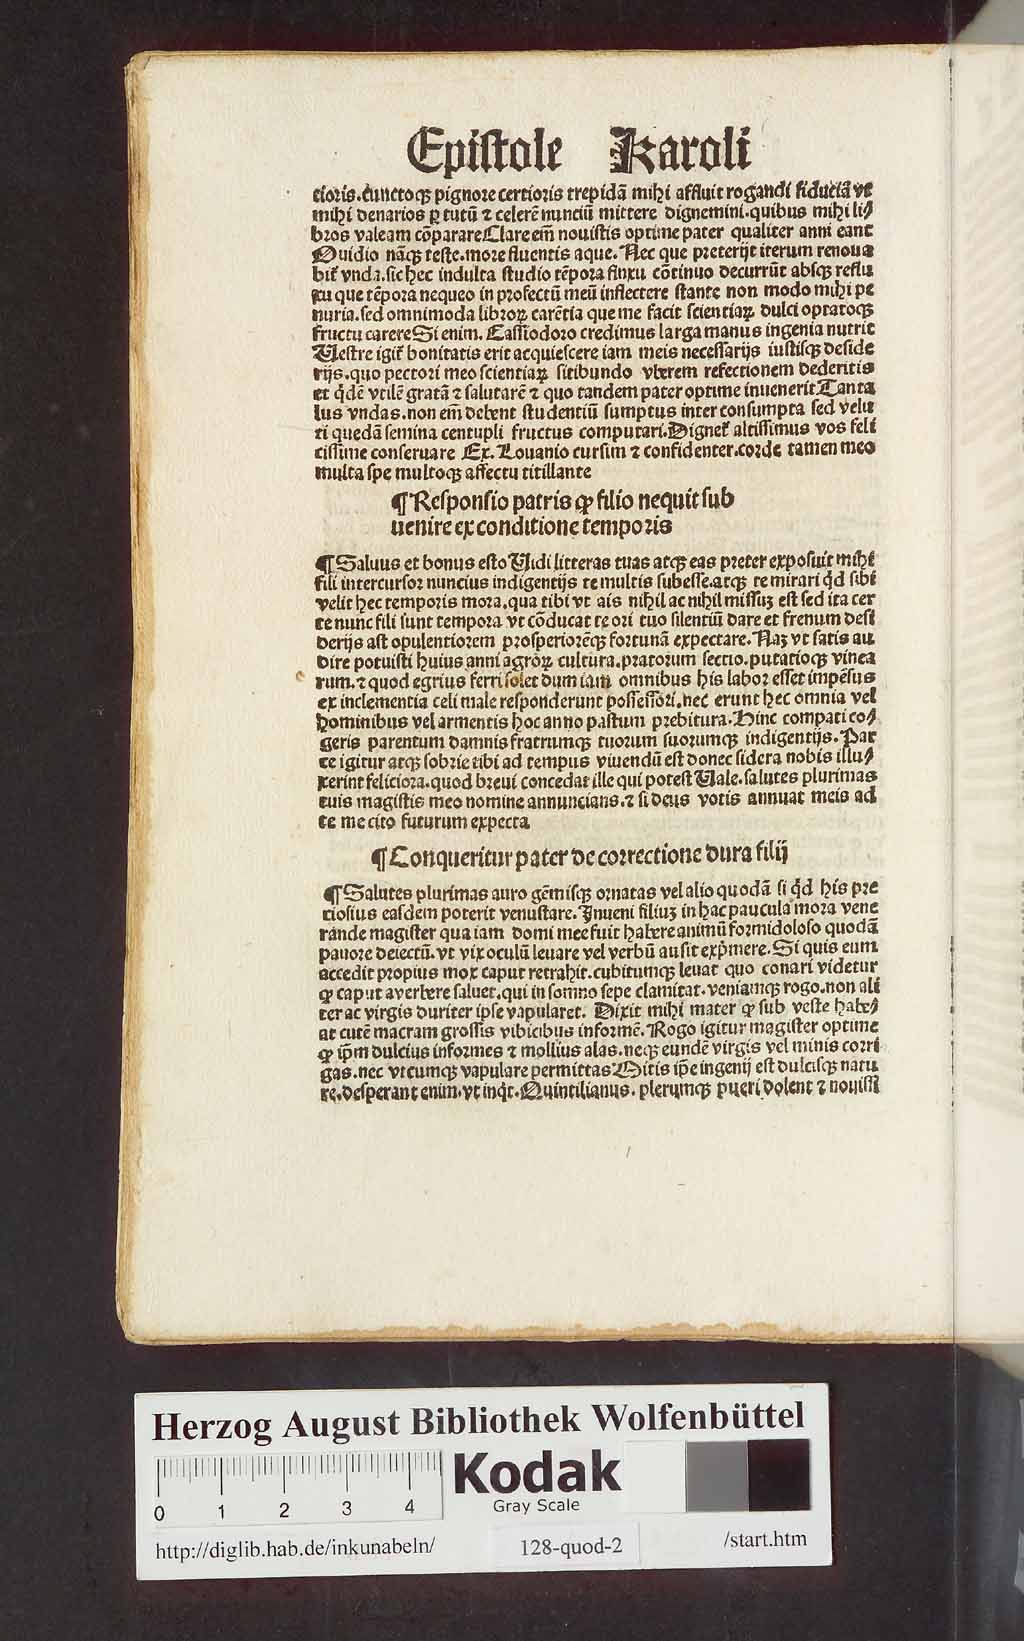 Epistole Karoli
cioris. cunctoqꝫ pignore certioris trepidā mihi affluit rogandi fiduciā vt
mihi denarios ꝑ tutū ⁊ celerē nunciū mittere dignemini. quibus mihi li⸗
bros valeam cōparare Clare em̄ nouistis optime pater qualiter anni eant
Ouidio nāqꝫ teste. more fluentis aque. Nec que preterijt iterum renoua
bit᷑ vnda. sic hec indulta studio tēpora fluxu cōtinuo decurrūt absqꝫ reflu
xu que tēpora nequeo in profectū meū inflectere stante non modo mihi pe
nuria. sed omnimoda libroꝝ carētia que me facit scientiaꝝ dulci optatoqꝫ
fructu carere Si enim. Cassiodoro credimus larga manus ingenia nutrit
Uestre igit᷑ bonitatis erit acquiescere iam meis necessarijs iustisqꝫ deside
rijs. quo pectori meo scientiaꝝ sitibundo vberem refectionem dederitis
et qd̄ē vtilē gratā ⁊ salutarē ⁊ quo tandem pater optime inuenerit Tanta
lus vndas. non em̄ debent studentiū sumptus inter consumpta sed velu
ti quedā semina centupli fructus computari. Dignet᷑ altissimus vos feli
cissime conseruare Ex. Louanio cursim ⁊ confidenter. corde tamen meo
multa spe multoqꝫ affectu titillante
¶ Responsio patris ꝙ filio nequit sub
uenire ex conditione temporis
¶ Saluus et bonus esto Uidi litteras tuas atqꝫ eas preter exposuit mihi
fili intercursor nuncius indigentijs te multis subesse. atqꝫ te mirari qd̄ sibi
velit hec temporis mora. qua tibi vt ais nihil ac nihil missuꝫ est sed ita cer
te nunc fili sunt tempora vt cōducat te ori tuo silentiū dare et frenum desi
derijs ast opulentiorem prosperiorēqꝫ fortunā expectare. Naꝫ vt satis au
dire potuisti huius anni agroꝝ cultura. pratorum sectio. putatioqꝫ vinea
rum. ⁊ quod egrius ferri solet dum iam omnibus his labor esset impēsus
ex inclementia celi male responderunt possessori. nec erunt hec omnia vel
hominibus vel armentis hoc anno pastum prebitura. Hinc compati co⸗
geris parentum damnis fratrumqꝫ tuorum suorumqꝫ indigentijs. Par
ce igitur atqꝫ sobrie tibi ad tempus viuendū est donec sidera nobis illu⸗
xerint feliciora. quod breui concedat ille qui potest Uale. salutes plurimas
tuis magistis meo nomine annuncians. ⁊ si deus votis annuat meis ad
te me cito futurum expecta
¶ Conqueritur pater de correctione dura filij
¶ Salutes plurimas auro gēmisqꝫ ornatas vel alio quodā si qd̄ his pre
ciosius easdem poterit venustare. Inueni filiuꝫ in hac paucula mora vene
rande magister qua iam domi mee fuit habere animū formidoloso quodā
pauore deiectū. vt vix oculū leuare vel verbū ausit exp̄mere. Si quis eum
accedit propius mox caput retrahit. cubitumqꝫ leuat quo conari videtur
ꝙ caput a verbere saluet. qui in somno sepe clamitat. veniamqꝫ rogo. non ali
ter ac virgis duriter ipse vapularet. Dixit mihi mater ꝙ sub veste habe⸗
at cutē macram grossis vibicibus informē. Rogo igitur magister optime
ꝙ ip̄m dulcius informes ⁊ mollius alas. neqꝫ eundē virgis vel minis corri
gas. nec vtcumqꝫ vapulare permittas Mitis ip̄e ingenij est dulcisqꝫ natu
re. desperant enim. vt inqt. Quintilianus. plerumqꝫ pueri dolent ⁊ nouissi
Herzog August Bibliothek Wolfenbüttel
Kodak
Gray Scale
0 1 2 3 4
http://diglib.hab.de/inkunabeln/ 128-quod-2 /start.htm